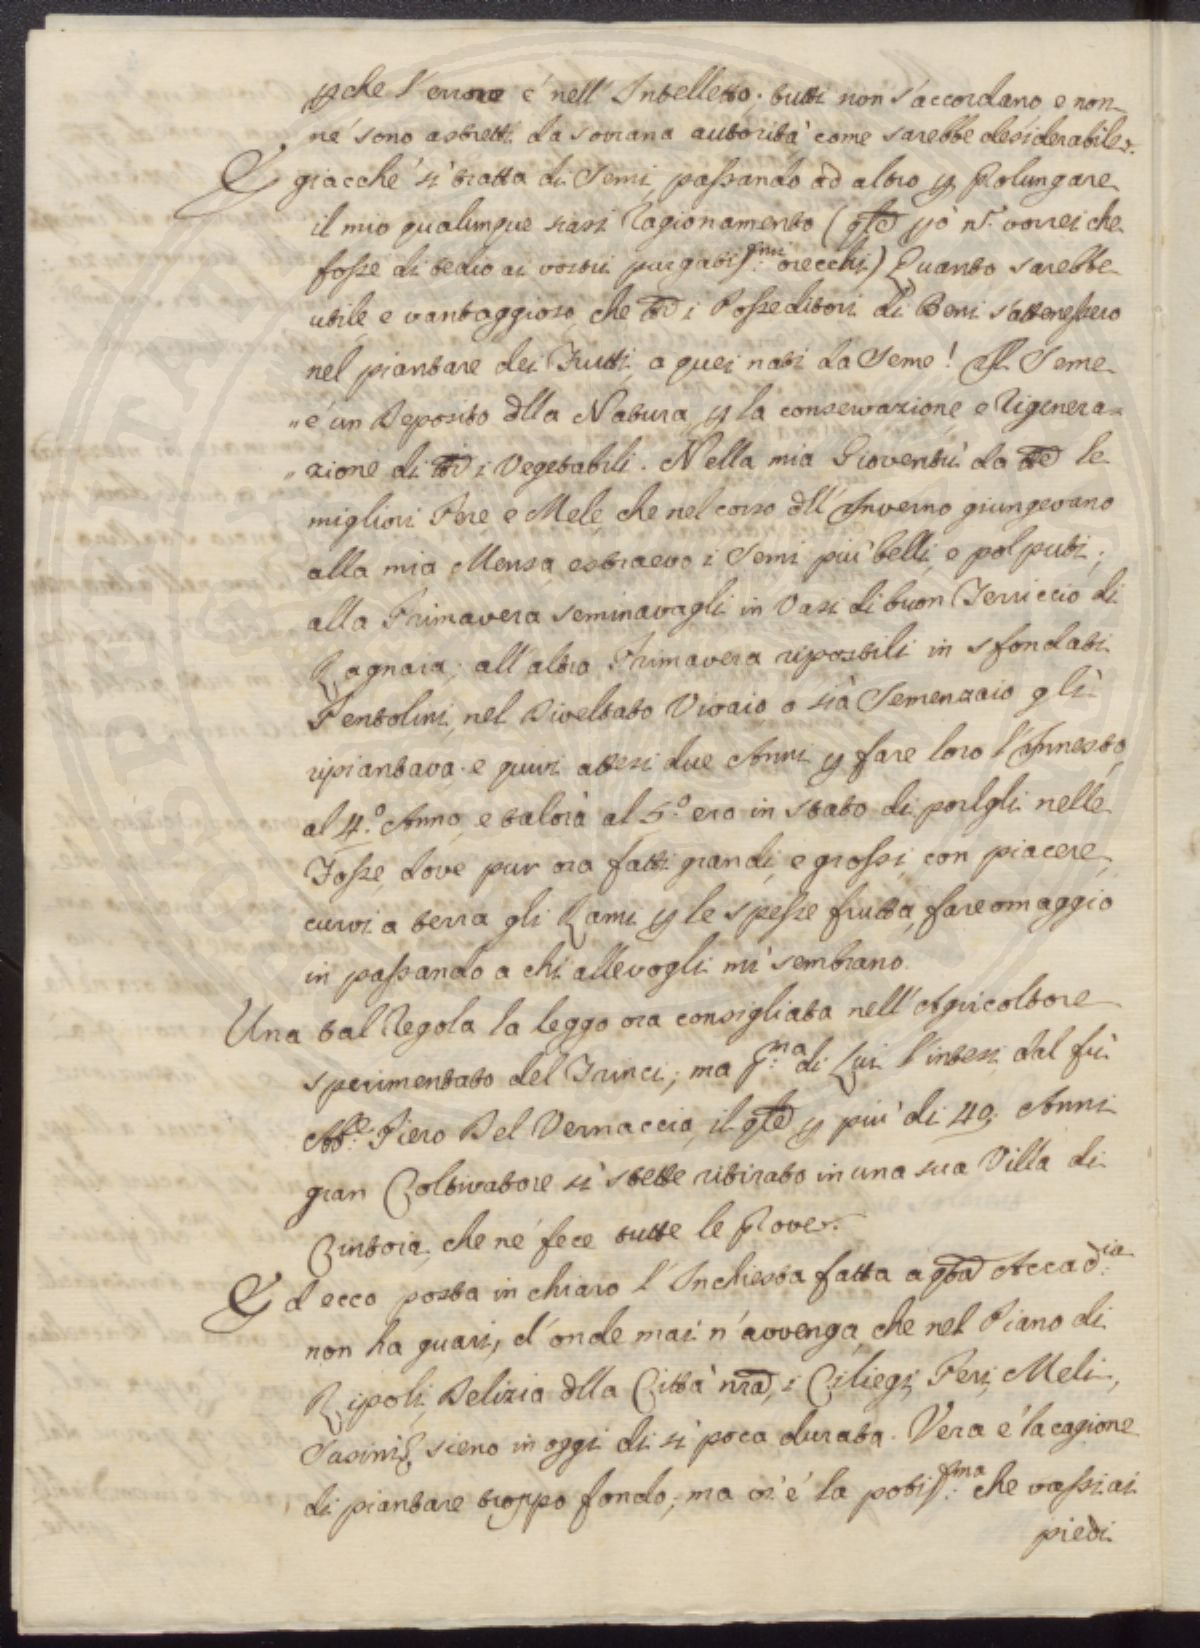 pche l'errore é nell'Intelletto. tutti non s'accordano e non
né sono astretti da sovrana autorità come sarebbe desiderabile.
E giacché si tratta di Semi, passando ad altro p Prolungare
il mio qualunque siasi Ragionamento (qle pò nō vorrei che
fosse di tedio ai vostri purgatissmi orecchi) Quanto sarebbe
utile e vantaggioso, che tti i Posseditori di Beni s'attenessero
nel piantare dei Frutti, a quei nati da Seme! Il Seme
"é un Deposito dlla Natura p la conservazione, e Rigenera=
"zione di tti i Vegetabili. Nella mia Gioventù da tte le
migliori Pere, e Mele, che nel corso dll'Inverno giungevano
alla mia Mensa, estraevo i Semi più belli, e polputi;
alla Primavera seminavagli in Vasi di buon Terriccio di
Ragnaia; all'altra Primavera ripostili in sfondati
Pentolini, nel Diveltato Vivaio, o sia Semenzaio gli
ripiantava. e quivi attesi due Anni p fare loro l'Annesto,
al 4.º Anno, e talora al 5.º ero in stato di porlgli nelle
Fosse, dove pur ora fatti grandi, e grossi, con piacere,
curvi a terra gli Rami p le spesse frutta, fare omaggio
in passando a chi allevogli mi sembrano.
Una tal Regola la leggo ora consigliata nell'Agricoltore
sperimentato del Trinci; ma pma di Lui l'intesi dal fù
Abe. Piero Del Vernaccia, il qle p più di 40. Anni
gran Coltivatore si stette ritirato in una sua Villa di
Cintoia. che né fece tutte le Prove.
Ed ecco posta in chiaro l'Inchiesta fatta a qta Accadia
non ha guari, d'onde mai n'avvenga, che nel Piano di
Ripoli, Delizia dlla Città nra, i Ciliegi, Peri, Meli,
Susini &, sieno in oggi di sì poca durata. Vera é la cagione
di piantare troppo fondo; ma vi é la potissma: che vassi ai
piedi